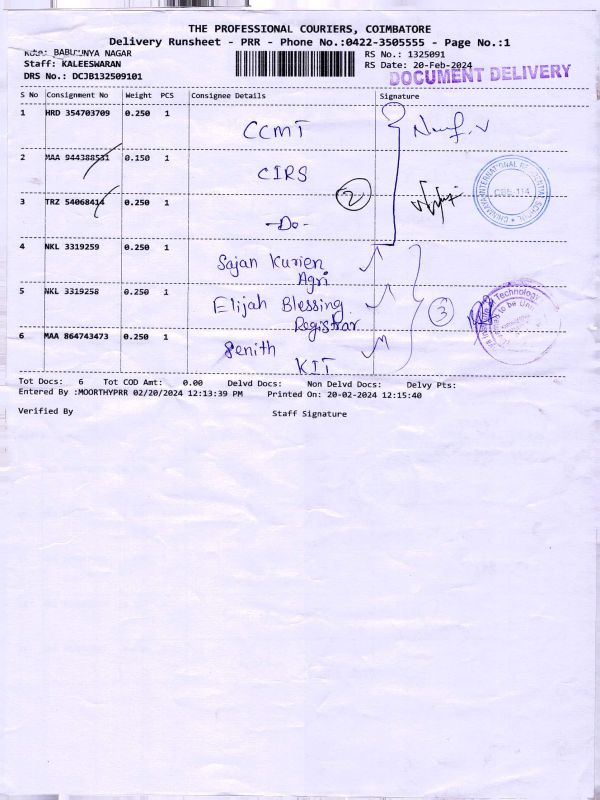 THE PROFESSIONAL COURIERS, COIMBATORE
Delivery Runsheet - PRR - Phone No.:0422-3505555 - Page No.:1
NAGAR
RS No.: 1325091
Staff: KALEESWARAN
RS Date: 20-Feb-2024
DRS No.: DCJB132509101
DOCUMENT DELIVERY
S No Consignment No Weight PCS Consignee Details Signature
1 HRD 354703709 0.250 1 CCMT
2 MAA 944388531 0.150 1 CIRS
3 TRZ 54068414 0.250 1 -Do-
2
CHINMAYA INTERNATIONAL RESIDENTIAL SCHOOL
CBE-114
4 NKL 3319259 0.250 1 Sajan Kurien
Agri
5 NKL 3319258 0.250 1 Elijah Blessing
Registrar
3
Technology
to be Uni
6 MAA 864743473 0.250 1 Senith
KIT
Tot Docs: 6 Tot COD Amt: 0.00 Delvd Docs: Non Delvd Docs: Delvy Pts:
Entered By :MOORTHYPRR 02/20/2024 12:13:39 PM Printed On: 20-02-2024 12:15:40
Verified By Staff Signature